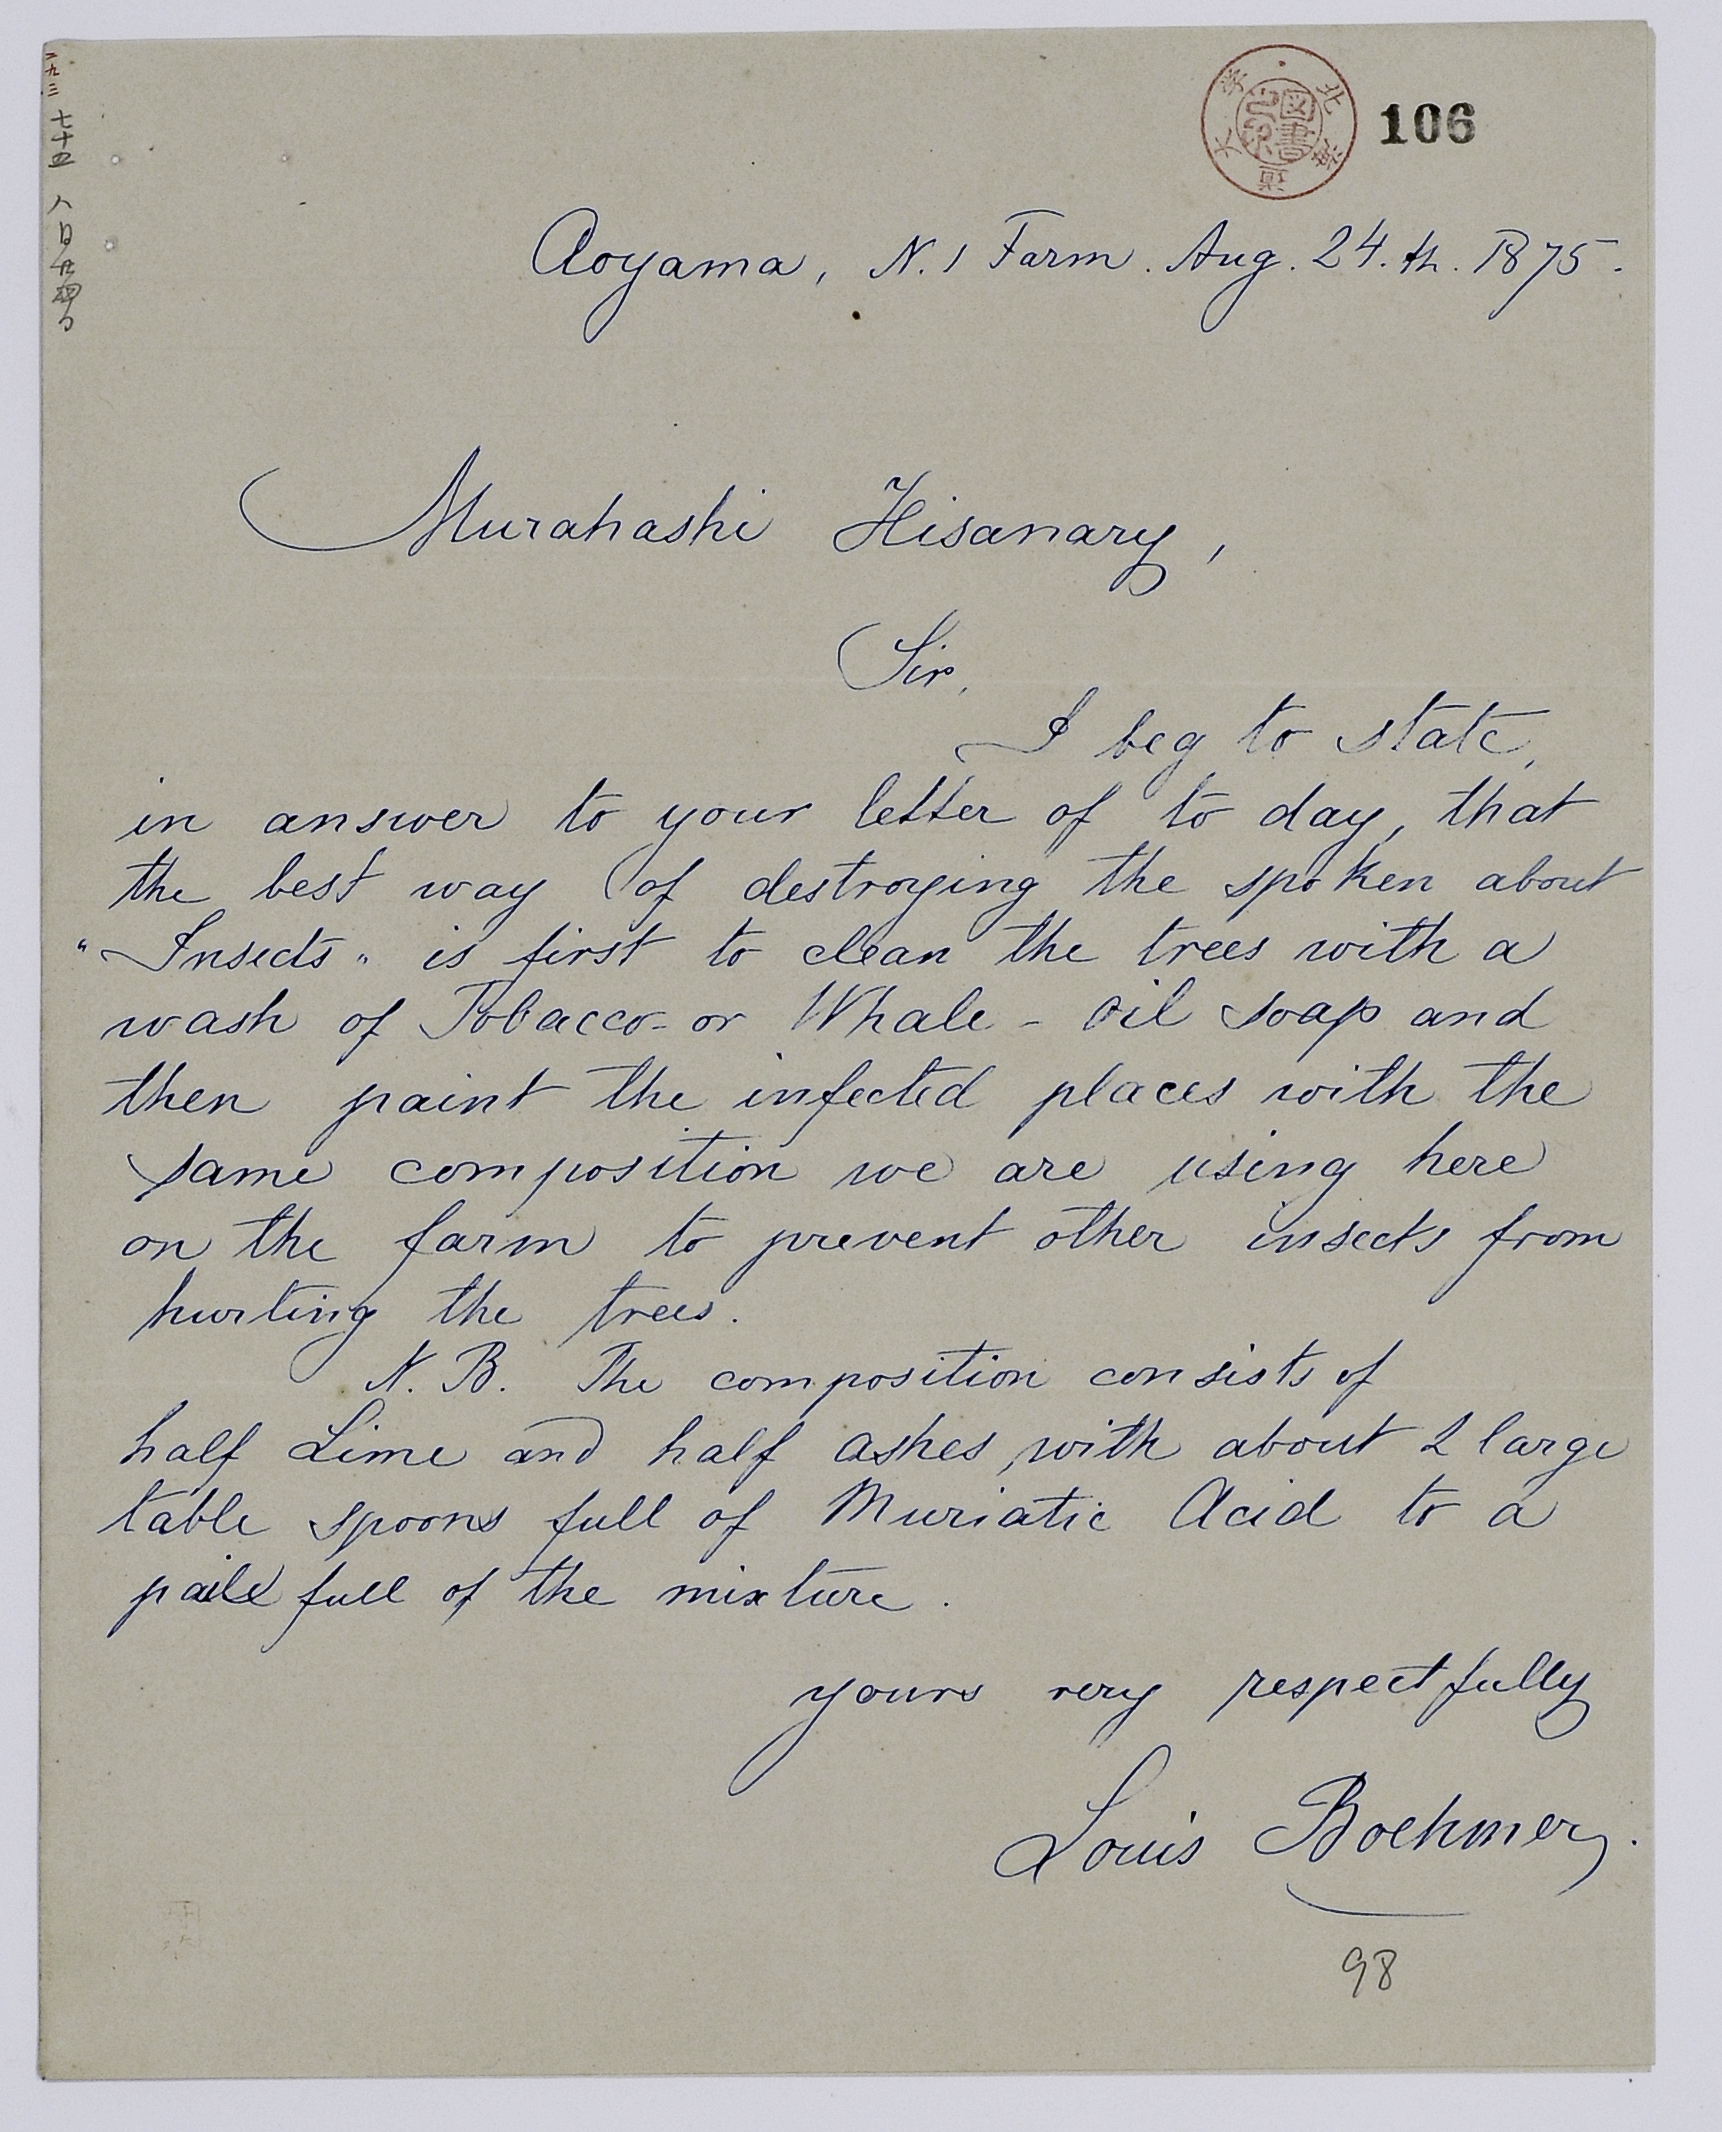 106
Aoyama, N. 1 Farm. Aug. 24. th. 1875.
Murahashi Hisanary,
Sir,
I beg to state,
in answer to your letter of to day, that
the best way of destroying the spoken about
"Insects" is first to clean the trees with a
wash of Tobacco- or Whale - oil soap and
then paint the infected places with the
same composition we are using here
on the farm to prevent other insects from
hurting the trees.
N. B. The composition consists of
half Lime and half ashes, with about 2 large
table spoons full of Muriatic Acid to a
paile full of the mixture.
yours very respectfully
Louis Boehmer.
98